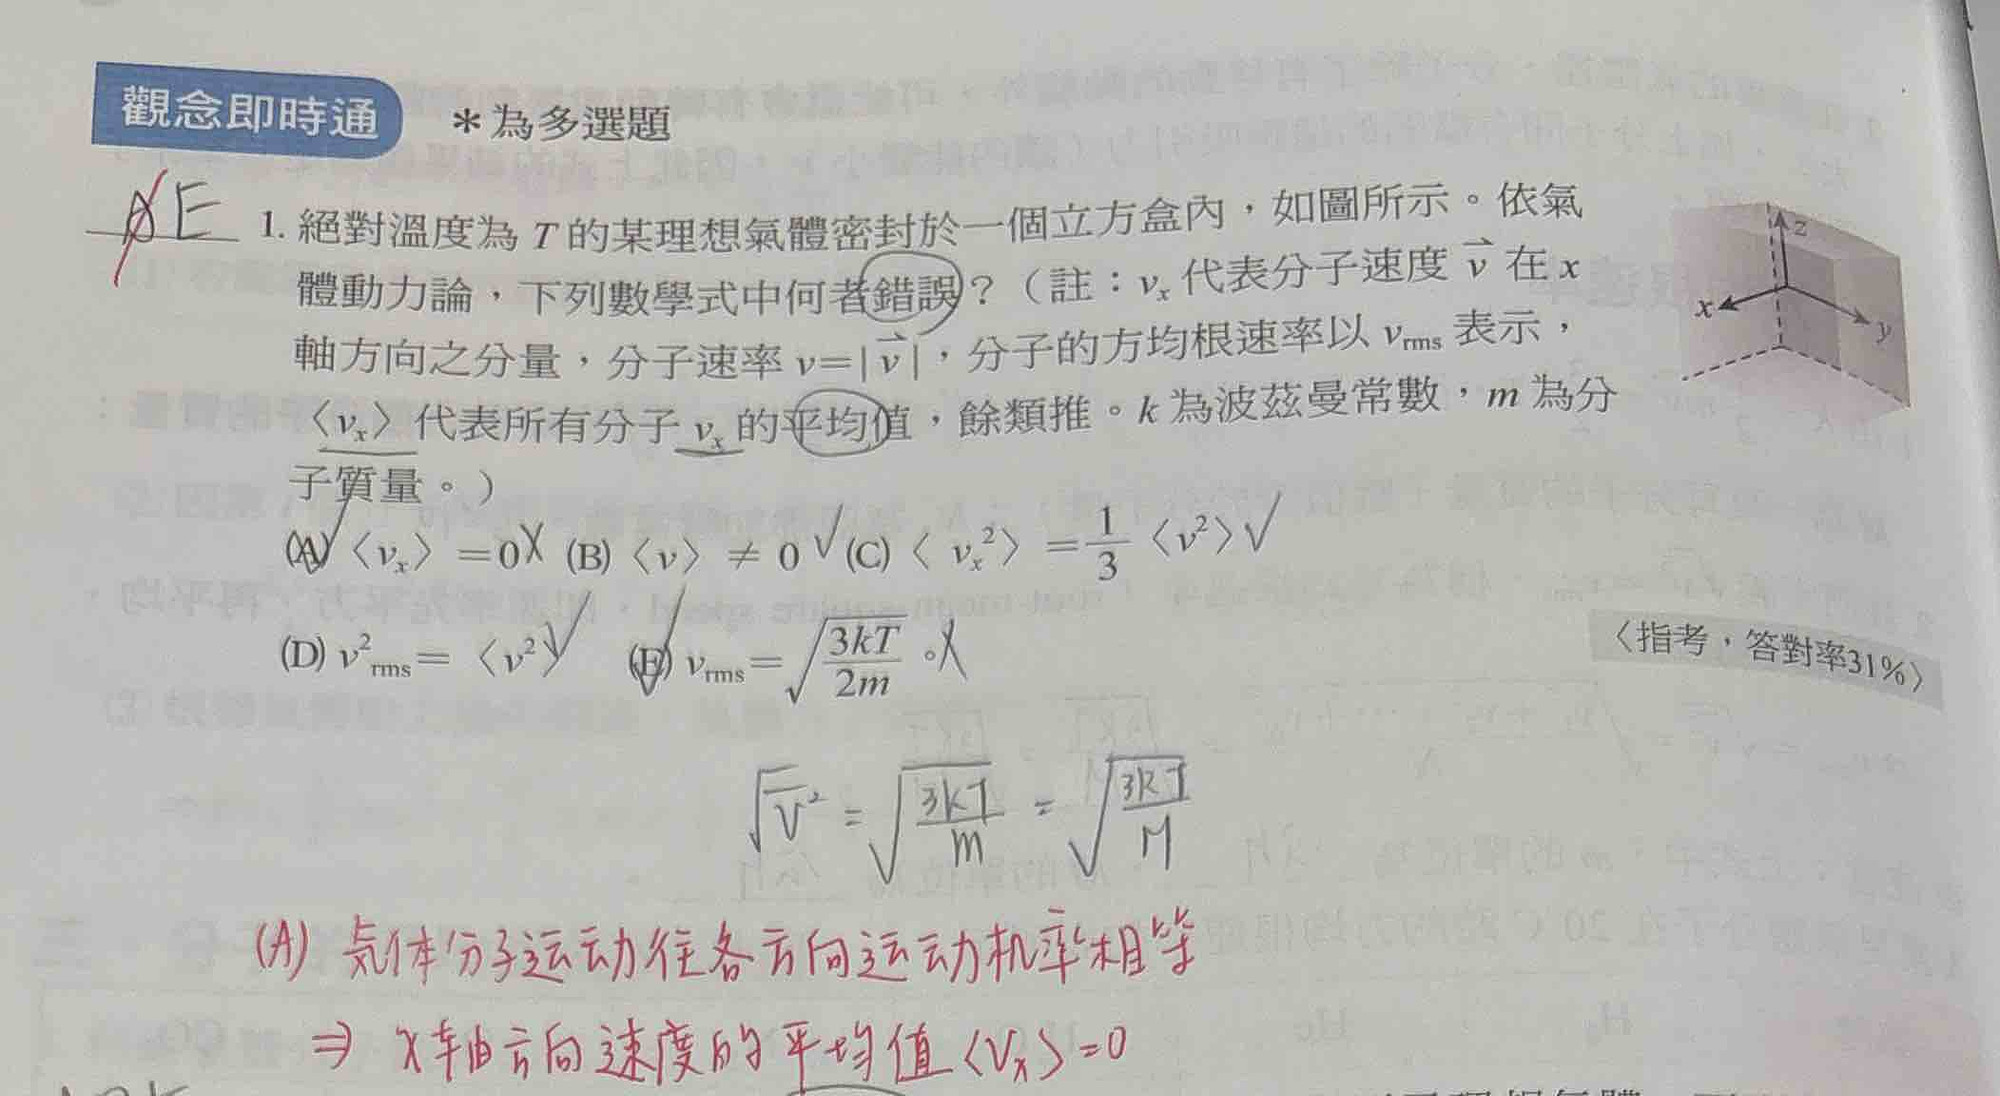 觀念即時通 *為多選題
AE 1. 絕對溫度為 T 的某理想氣體密封於一個立方盒內，如圖所示。依氣
體動力論，下列數學式中何者錯誤？（註：vₓ 代表分子速度 v⃗ 在 x
軸方向之分量，分子速率 v=|v⃗|，分子的方均根速率以 v_rms 表示，
〈vₓ〉代表所有分子 vₓ 的平均值，餘類推。k 為波茲曼常數，m 為分
子質量。）
(A)〈vₓ〉=0 X (B)〈v〉≠ 0 √ (C)〈vₓ²〉=1/3〈v²〉√
(D) v²_rms=〈v²〉√ (E) v_rms=√(3kT/2m)。X
〈指考，答對率31%〉
z
x
y
√v̄² = √(3kT/m) = √(3RT/M)
(A) 気体分子运动往各方向运动机率相等
⇒ x轴方向速度的平均值〈Vx〉=0